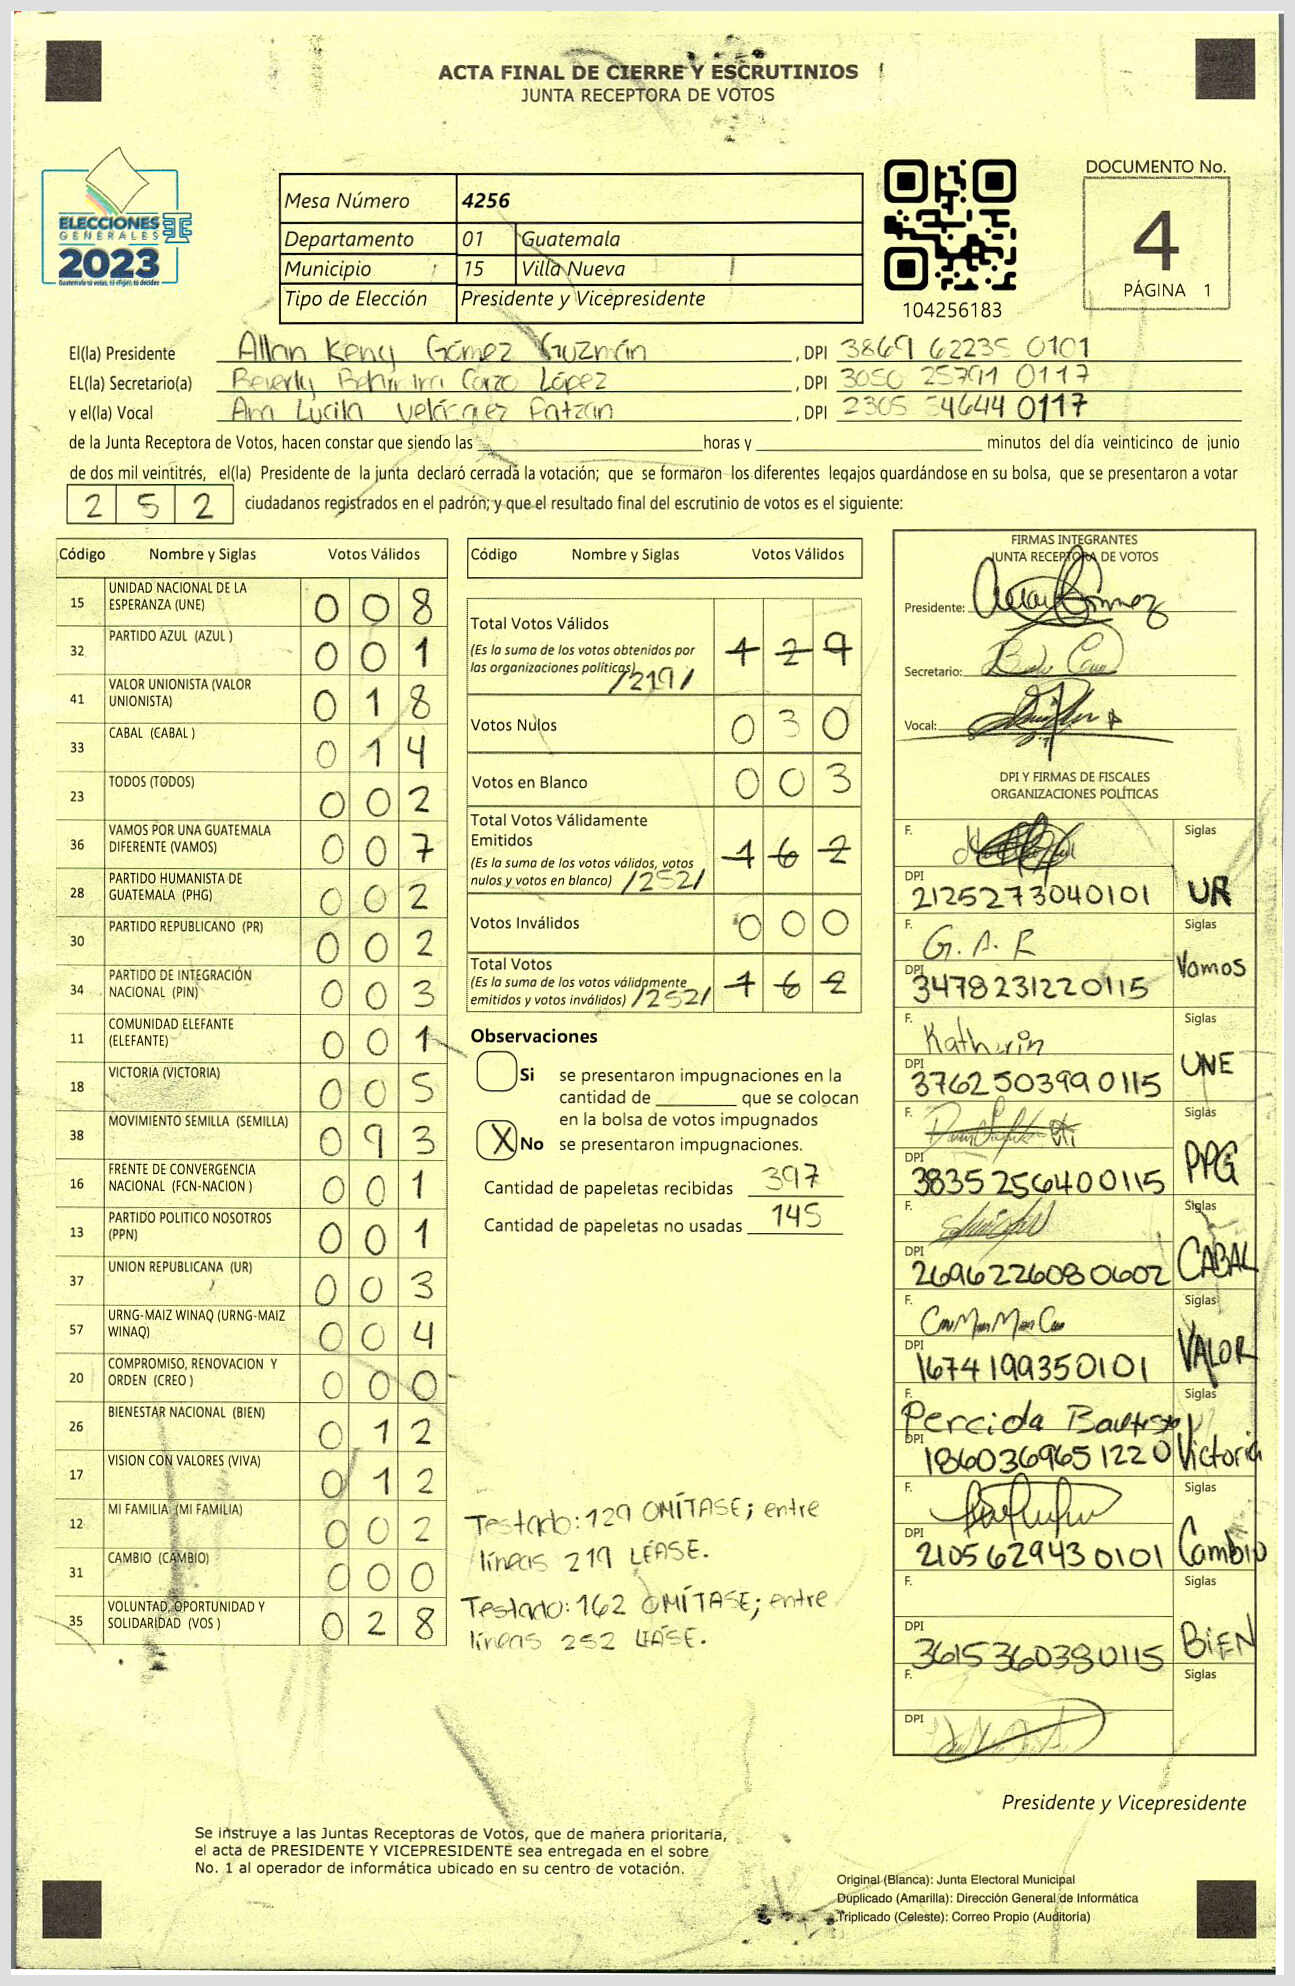 ACTA FINAL DE CIERRE Y ESCRUTINIOS
JUNTA RECEPTORA DE VOTOS
ELECCIONES
GENERALES
2023
Guatemala tú votas, tú eliges, tú decides
Mesa Número 4256
Departamento 01 Guatemala
Municipio 15 Villa Nueva
Tipo de Elección Presidente y Vicepresidente
104256183
DOCUMENTO No.
4
PÁGINA 1
El(la) Presidente Allan Keny Gómez Guzmán, DPI 3869 62235 0101
EL(la) Secretario(a) Beverly Corzo López, DPI 3050 25791 0117
y el(la) Vocal Ana Lucila Velásquez Patzan, DPI 2305 54644 0117
de la Junta Receptora de Votos, hacen constar que siendo las horas y minutos del día veinticinco de junio
de dos mil veintitrés, el(la) Presidente de la junta declaró cerrada la votación; que se formaron los diferentes legajos quardándose en su bolsa, que se presentaron a votar
2 5 2 ciudadanos registrados en el padrón; y que el resultado final del escrutinio de votos es el siguiente:
Código Nombre y Siglas Votos Válidos
15 UNIDAD NACIONAL DE LA ESPERANZA (UNE) 0 0 8
32 PARTIDO AZUL (AZUL ) 0 0 1
41 VALOR UNIONISTA (VALOR UNIONISTA) 0 1 8
33 CABAL (CABAL ) 0 1 4
23 TODOS (TODOS) 0 0 2
36 VAMOS POR UNA GUATEMALA DIFERENTE (VAMOS) 0 0 7
28 PARTIDO HUMANISTA DE GUATEMALA (PHG) 0 0 2
30 PARTIDO REPUBLICANO (PR) 0 0 2
34 PARTIDO DE INTEGRACIÓN NACIONAL (PIN) 0 0 3
11 COMUNIDAD ELEFANTE (ELEFANTE) 0 0 1
18 VICTORIA (VICTORIA) 0 0 5
38 MOVIMIENTO SEMILLA (SEMILLA) 0 9 3
16 FRENTE DE CONVERGENCIA NACIONAL (FCN-NACION ) 0 0 1
13 PARTIDO POLITICO NOSOTROS (PPN) 0 0 1
37 UNION REPUBLICANA (UR) 0 0 3
57 URNG-MAIZ WINAQ (URNG-MAIZ WINAQ) 0 0 4
20 COMPROMISO, RENOVACION Y ORDEN (CREO ) 0 0 0
26 BIENESTAR NACIONAL (BIEN) 0 1 2
17 VISION CON VALORES (VIVA) 0 1 2
12 MI FAMILIA (MI FAMILIA) 0 0 2
31 CAMBIO (CAMBIO) 0 0 0
35 VOLUNTAD, OPORTUNIDAD Y SOLIDARIDAD (VOS ) 0 2 8
Código Nombre y Siglas Votos Válidos
Total Votos Válidos 1 2 9
(Es la suma de los votos obtenidos por
las organizaciones políticas) /219/
Votos Nulos 0 3 0
Votos en Blanco 0 0 3
Total Votos Válidamente
Emitidos 1 6 2
(Es la suma de los votos válidos, votos
nulos y votos en blanco) /252/
Votos Inválidos 0 0 0
Total Votos
(Es la suma de los votos válidamente 1 6 2
emitidos y votos inválidos) /252/
Observaciones
Si se presentaron impugnaciones en la
cantidad de que se colocan
en la bolsa de votos impugnados
X No se presentaron impugnaciones.
Cantidad de papeletas recibidas 397
Cantidad de papeletas no usadas 145
Testado: 129 OMÍTASE; entre
líneas 219 LEASE.
Testado: 162 OMÍTASE; entre
líneas 252 LEASE.
FIRMAS INTEGRANTES
JUNTA RECEPTORA DE VOTOS
Presidente:
Secretario:
Vocal:
DPI Y FIRMAS DE FISCALES
ORGANIZACIONES POLÍTICAS
F. Siglas
DPI 2125273040101 UR
F. G. A. R Siglas
DPI 3478231220115 Vamos
F. Katherin Siglas
DPI 3762503990115 UNE
F. Siglas
DPI 3835256400115 PPG
F. Siglas
DPI 2696226080602 CABAL
F. Siglas
DPI 1674199350101 VALOR
F. Percida Bautista Siglas
DPI 1860369651220 Victoria
F. Siglas
DPI 2105629430101 Cambio
F. Siglas
DPI 3615360380115 BIEN
F. Siglas
DPI
Presidente y Vicepresidente
Se instruye a las Juntas Receptoras de Votos, que de manera prioritaria,
el acta de PRESIDENTE Y VICEPRESIDENTE sea entregada en el sobre
No. 1 al operador de informática ubicado en su centro de votación.
Original (Blanca): Junta Electoral Municipal
Duplicado (Amarilla): Dirección General de Informática
Triplicado (Celeste): Correo Propio (Auditoría)